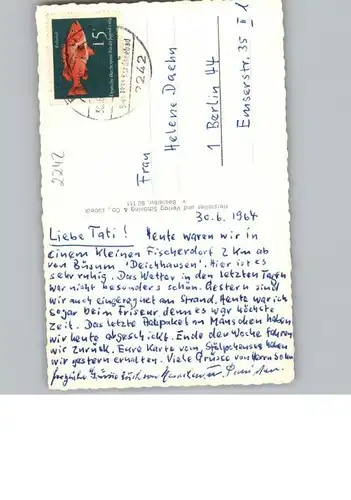 15
2242
2242
Frau
Helene Daehn
1 Berlin 44
Emserstr. 35 II 1
Hersteller und Verlag Schöning & Co., Lübeck
30.6.1964
Liebe Tati! Heute waren wir in
einem kleinen Fischerdorf 2 km ab
von Büsum "Deichhausen". Hier ist es
sehr ruhig. Das Wetter in den letzten Tagen
war nicht besonders schön. Gestern sind
wir auch eingeregnet am Strand. Heute war ich
sogar beim Friseur denn es war höchste
Zeit. Das letzte Fotopaket an Mänschen haben
wir heute abgeschickt. Ende der Woche fahren
wir zurück. Eure Karte vom
wir gestern erhalten. Viele Grüsse von